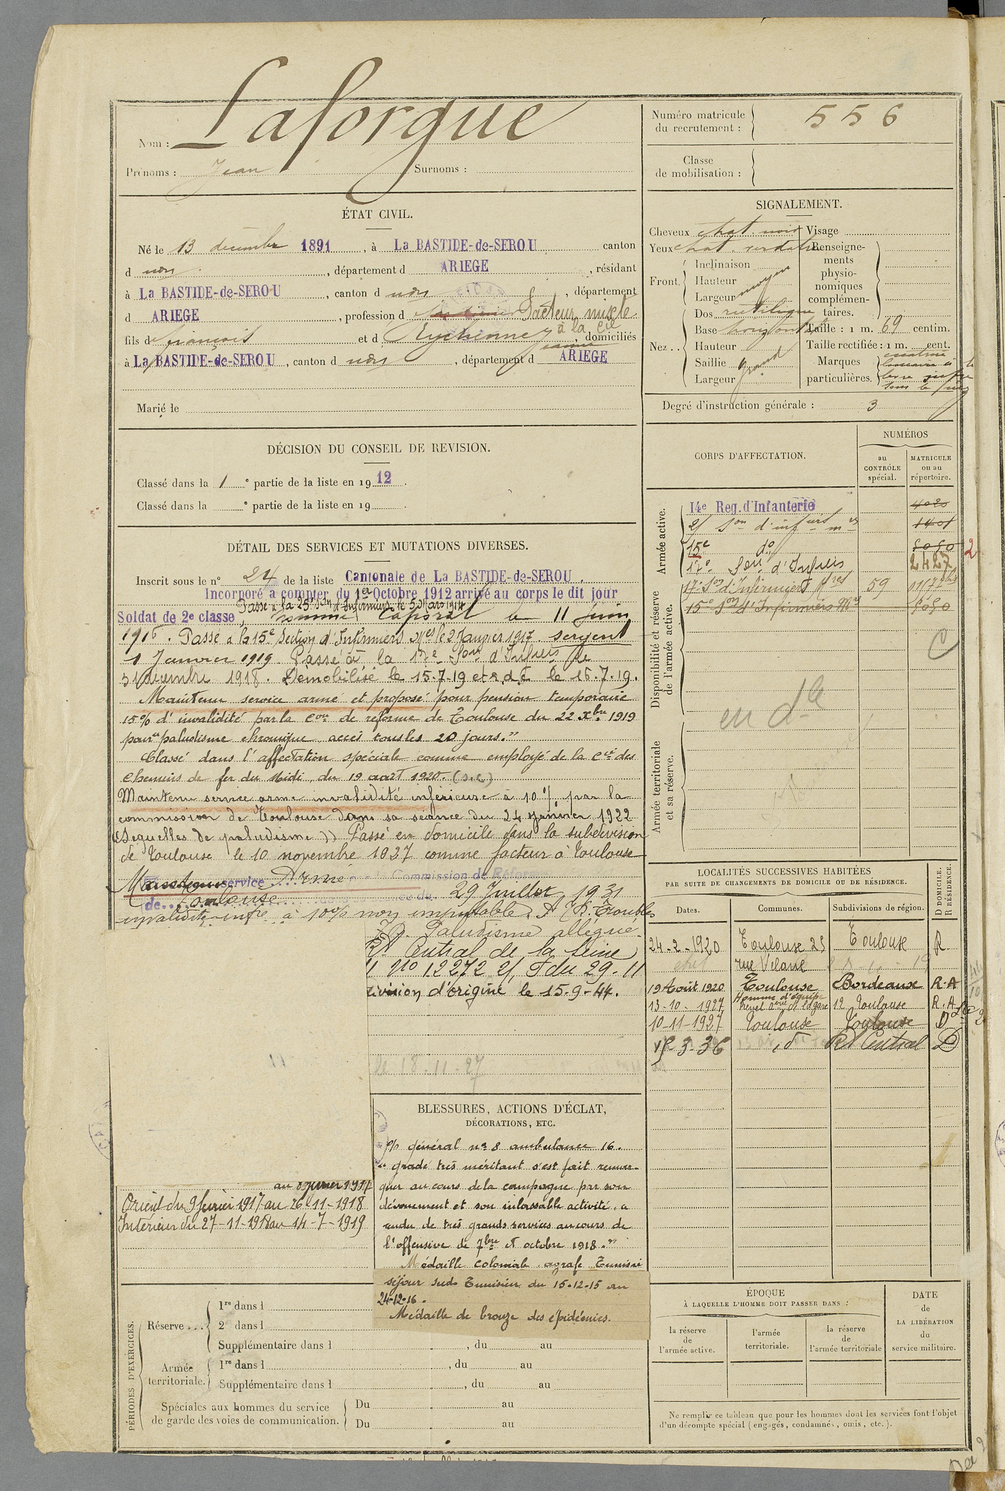 Nom : Laforgue
Prénoms : Jean Surnoms :
Numéro matricule du recrutement : 556
Classe de mobilisation :
ÉTAT CIVIL.
Né le 13 décembre 1891, à La BASTIDE-de-SEROU canton
d udos, département d ARIEGE, résidant
à La BASTIDE-de-SEROU, canton d udos, département
d ARIEGE, profession d Facteur mixte
à la Cie
fils de François et d domiciliés
à La BASTIDE-de-SEROU, canton d udos, département d ARIEGE
Marié le
SIGNALEMENT.
Cheveux chat. noir Visage
Yeux chat. verdâtre Renseigne-
ments
physio-
nomiques
complémen-
taires.
Front. Inclinaison
Hauteur moyen
Largeur
Nez.. Dos rectiligne
Base horizontale
Hauteur
Saillie grand
Largeur
Taille : 1 m. 69 centim.
Taille rectifiée : 1 m. cent.
Marques particulières.
Degré d'instruction générale : 3
DÉCISION DU CONSEIL DE REVISION.
Classé dans la 1e partie de la liste en 1912.
Classé dans la e partie de la liste en 19
CORPS D'AFFECTATION.
NUMÉROS
au CONTRÔLE spécial.
MATRICULE ou au répertoire.
Armée active.
14e Reg. d'Infanterie
15e do 8080 2
17e Son d'Infiers 2427
17e Son d'Infirmiers Mres 59
15e Son d'Infirmiers Mres 8080
Disponibilité et réserve de l'armée active.
C
en dle
Armée territoriale et sa réserve.
DÉTAIL DES SERVICES ET MUTATIONS DIVERSES.
Inscrit sous le n° 24 de la liste Cantonale de La BASTIDE-de-SEROU.
Incorporé à compter du 1er Octobre 1912 arrivé au corps le dit jour
Passé à la 25e Son d'Infirmiers le 5 Mars 1914
Soldat de 2e classe, nommé Caporal le 11 juin
1916. Passé à la 15e Section d'Infirmiers Mres le 2 Janvier 1917. Sergent
1 Janvier 1919. Passé à la 17e Son d'Infiers le
31 décembre 1918. Démobilisé le 15.7.19 et r.d.c. le 16.7.19.
Maintenu service armé et proposé pour pension temporaire
15% d'invalidité par la Con de réforme de Toulouse du 22 Xbre 1919
pour "paludisme chronique accès tous les 20 jours."
Classé dans l'affectation spéciale comme employé de la Cie des
Chemins de fer du Midi, du 19 août 1920. (s.c)
Maintenu service armé invalidité inférieure à 10% par la
commission de Toulouse dans sa séance du 24 janvier 1922
(Séquelles de paludisme)) Passé en domicile dans la subdivision
de Toulouse le 10 novembre 1927 comme facteur à Toulouse
Maintenu service Armé Commission de Réforme
de Toulouse du 29 Juillet 1931
invalidité infre à 10% non imputable.
Paludisme allégué.
RA Central de la Seine
no 12272 2/ du 29-11
division d'origine le 15-9-44.
le 18.11-27
au 8 février 1917
Orient du 9 février 1917 au 26-11-1918
Intérieur du 27-11-1918 au 14-7-1919
LOCALITÉS SUCCESSIVES HABITÉES
PAR SUITE DE CHANGEMENTS DE DOMICILE OU DE RÉSIDENCE.
Dates. Communes. Subdivisions de région. D DOMICILE. R RÉSIDENCE.
24-2-1920 Toulouse 25 rue Vélane Toulouse R
19 Août 1920 Toulouse Bordeaux R.A
13-10-1927 Homme d'équipe Toulouse R.A
10-11-1927 Toulouse Toulouse D
3-36 do RA Central D
BLESSURES, ACTIONS D'ÉCLAT,
DÉCORATIONS, ETC.
général no 8 ambulance 16.
gradé très méritant s'est fait remar-
quer au cours de la campagne par son
dévouement et son inlassable activité, a
rendu de très grands services au cours de
l'offensive de 7bre et octobre 1918."
Médaille Coloniale agrafe Tunisie
séjour sud Tunisien du 15-12-15 au
24-12-16.
Médaille de bronze des épidémies.
PÉRIODES D'EXERCICES.
Réserve...
1re dans l
2e dans l
Supplémentaire dans l , du au
Armée territoriale.
1re dans l , du au
Supplémentaire dans l , du au
Spéciales aux hommes du service de garde des voies de communication.
Du au
Du au
ÉPOQUE
À LAQUELLE L'HOMME DOIT PASSER DANS :
la réserve de l'armée active.
l'armée territoriale.
la réserve de l'armée territoriale
DATE de LA LIBÉRATION du service militaire.
Ne remplir ce tableau que pour les hommes dont les services font l'objet
d'un décompte spécial (engagés, condamnés, omis, etc.).